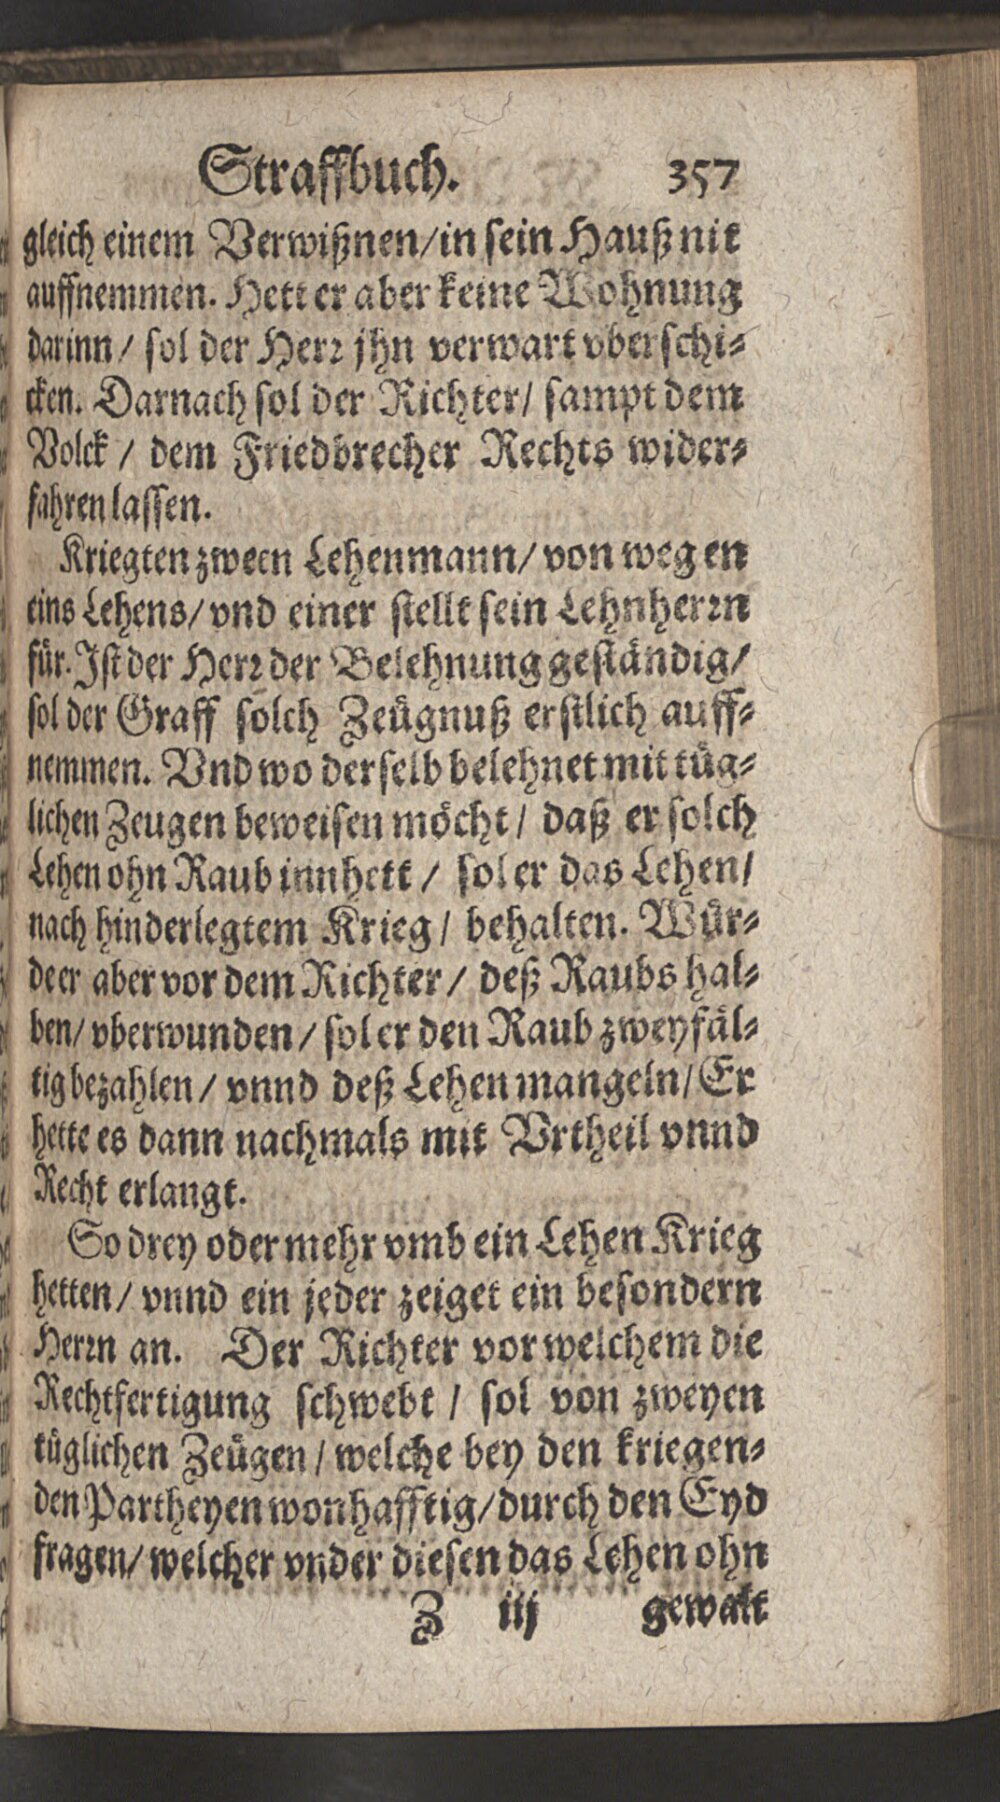 Straffbuch. 357
gleich einem Verwißnen/in sein Hauß nit
auffnemmen. Hett er aber keine Wohnung
darinn/ sol der Herr jhn verwart vberschi-
cken. Darnach sol der Richter/ sampt dem
Volck / dem Friedbrecher Rechts wider-
fahren lassen.
Kriegten zween Lehenmann/ von wegen
eins Lehens/ vnd einer stellt sein Lehnherrn
für. Ist der Herr der Belehnung geständig/
sol der Graff solch Zeügnuß erstlich auff-
nemmen. Vnd wo derselb belehnet mit tüg-
lichen Zeugen beweisen möcht/ daß er solch
Lehen ohn Raub innhett / sol er das Lehen/
nach hinderlegtem Krieg/ behalten. Wür-
de er aber vor dem Richter/ deß Raubs hal-
ben/ vberwunden/ sol er den Raub zweyfäl-
tig bezahlen/ vnnd deß Lehen mangeln/ Er
hette es dann nachmals mit Vrtheil vnnd
Recht erlangt.
So drey oder mehr vmb ein Lehen Krieg
hetten/ vnnd ein jeder zeiget ein besondern
Herrn an. Der Richter vor welchem die
Rechtfertigung schwebt / sol von zweyen
tüglichen Zeügen/ welche bey den kriegen-
den Partheyen wonhafftig/ durch den Eyd
fragen/ welcher vnder diesen das Lehen ohn
Z iij gewalt